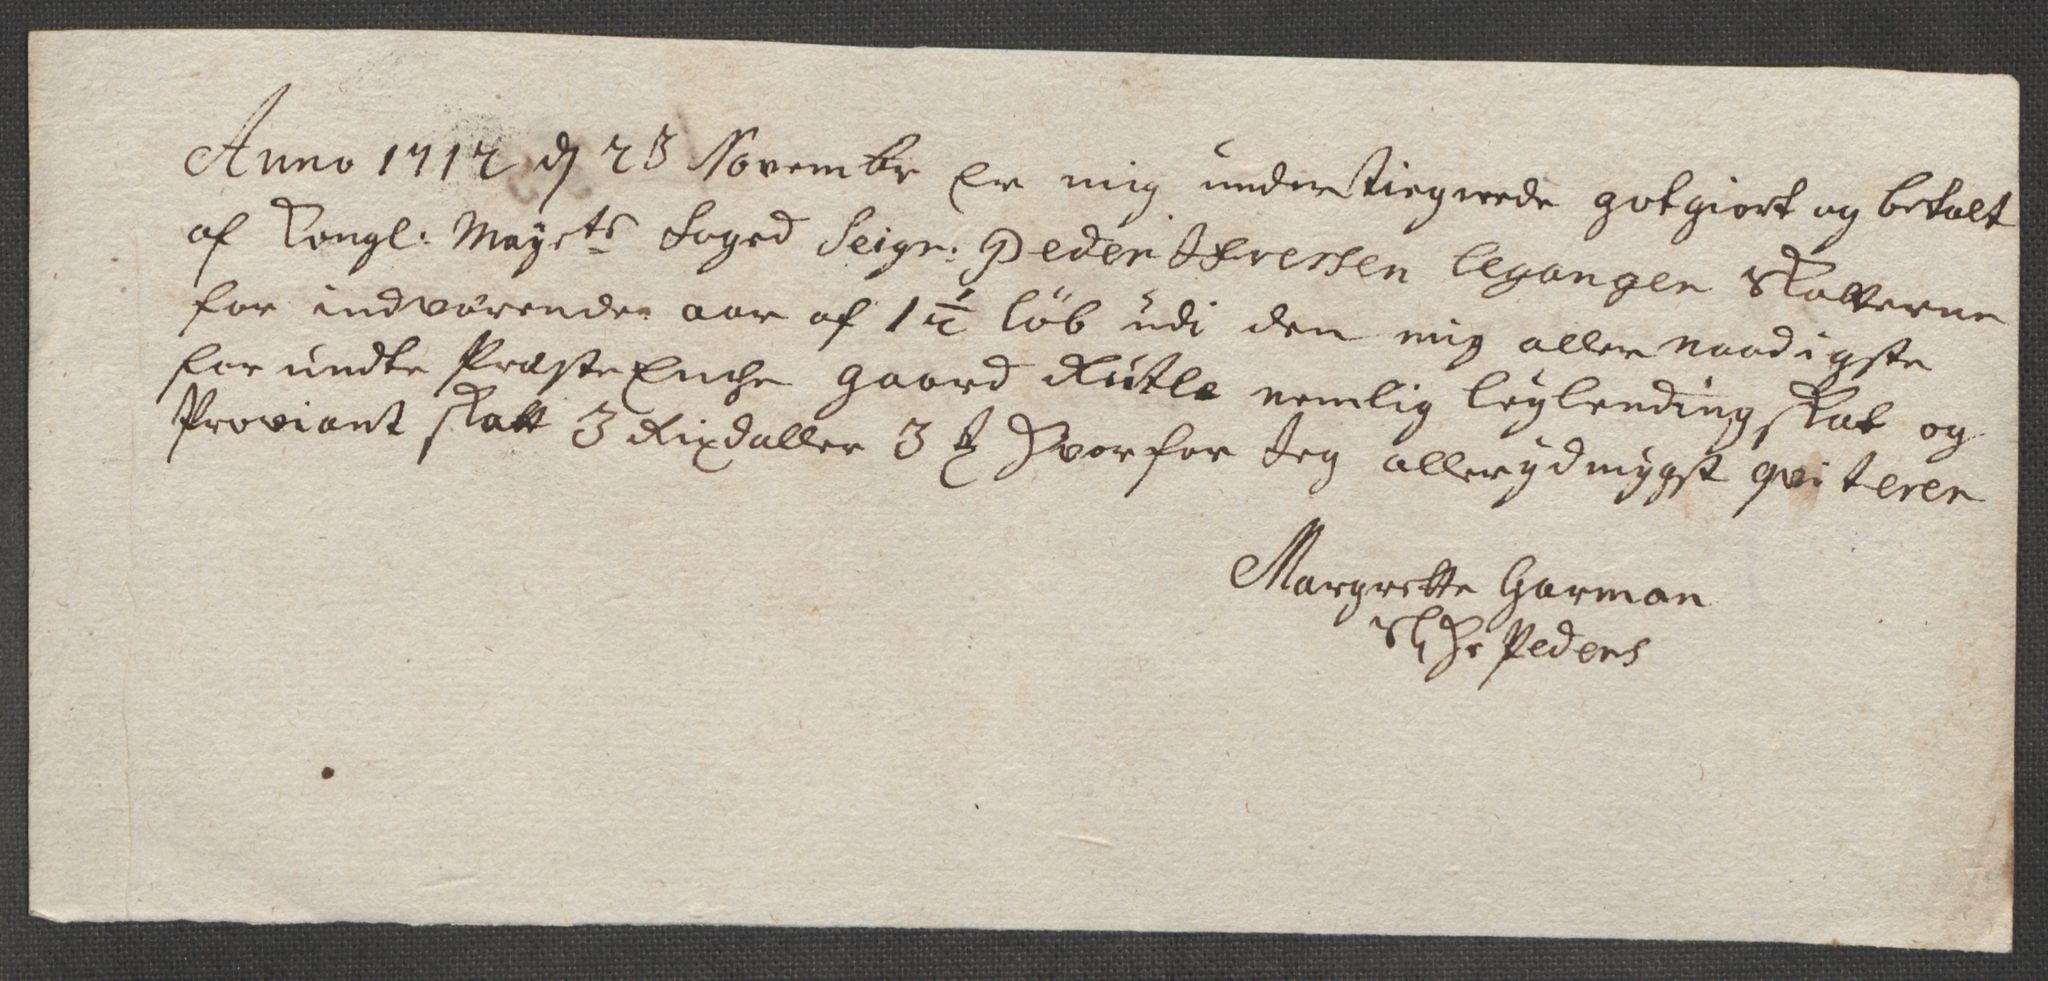 Anno 1712 d 23 Novembr Er mig understiegnede gotgiort og betalt
af Kongl: Mayts Foged Seigr: Peder Ifversen legangen Skatterne
for indværende aar af 1 1/2 löb udi den mig aller naadigste
for undte Præste Enche gaard Rutle nemlig leylending skat og
Proviant skatt 3 Rixdaller 3 ß Hvorfor Jeg allerydmygst qviterer
Margrette Garman
Sl Hr Peders